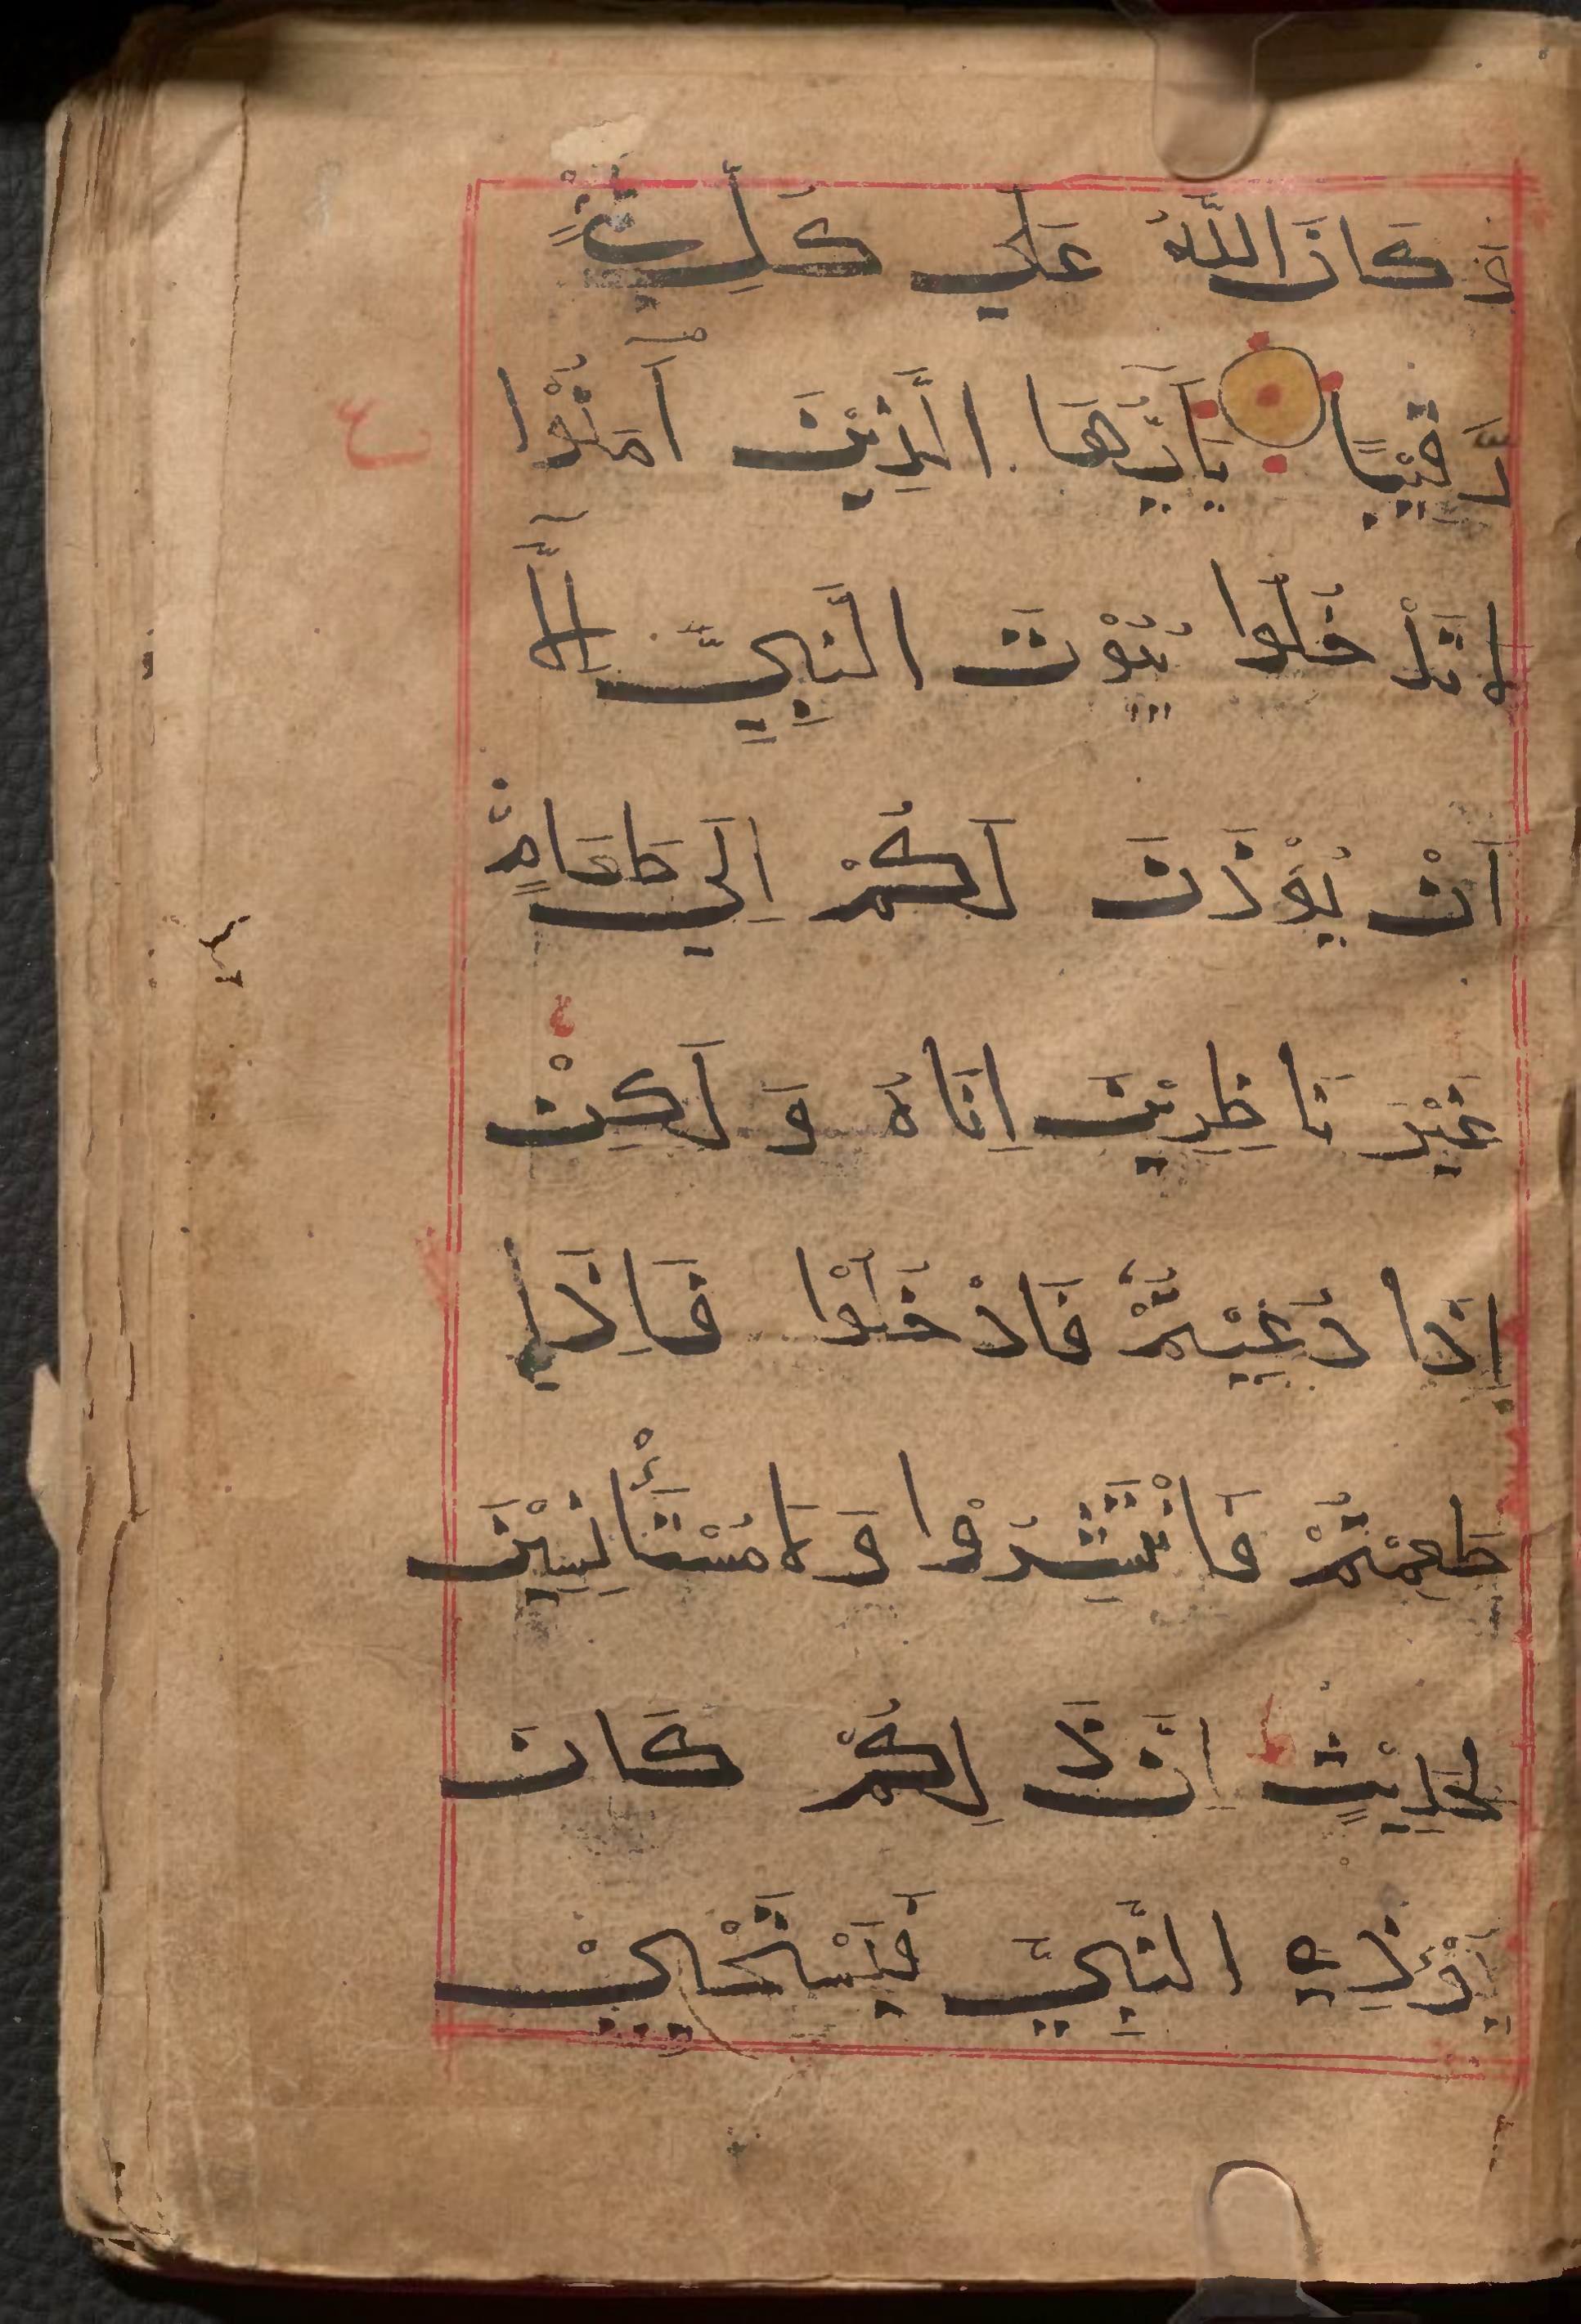 كَانَ اللَّهُ عَلَي كُلِّ شَيْءٍ
رَّقِيْبًا يَآيُّهَا الَّذِيْنَ آمَنُوْا
لَا تَدْخُلُوا بُيُوْتَ النَّبِيِّ اِلَّآ
اَنْ يُّوْذَنَ لَكُمْ اِلَي طَعَامٍ
غَيْرَ نَاظِرِيْنَ اِنَاهُ وَ لَكِنْ
اِذَا دُعِيْتُمْ فَادْخُلُوْا فَاِذَا
طَعِمْتُمْ فَانْتَشِرُوْا وَلَا مُسْتَأْنِسِيْنَ
لِحَدِيْثٍ اِنَّ ذَلِكُمْ كَانَ
يُؤْذِي النَّبِيَّ فَيَسْتَحْيِيْ